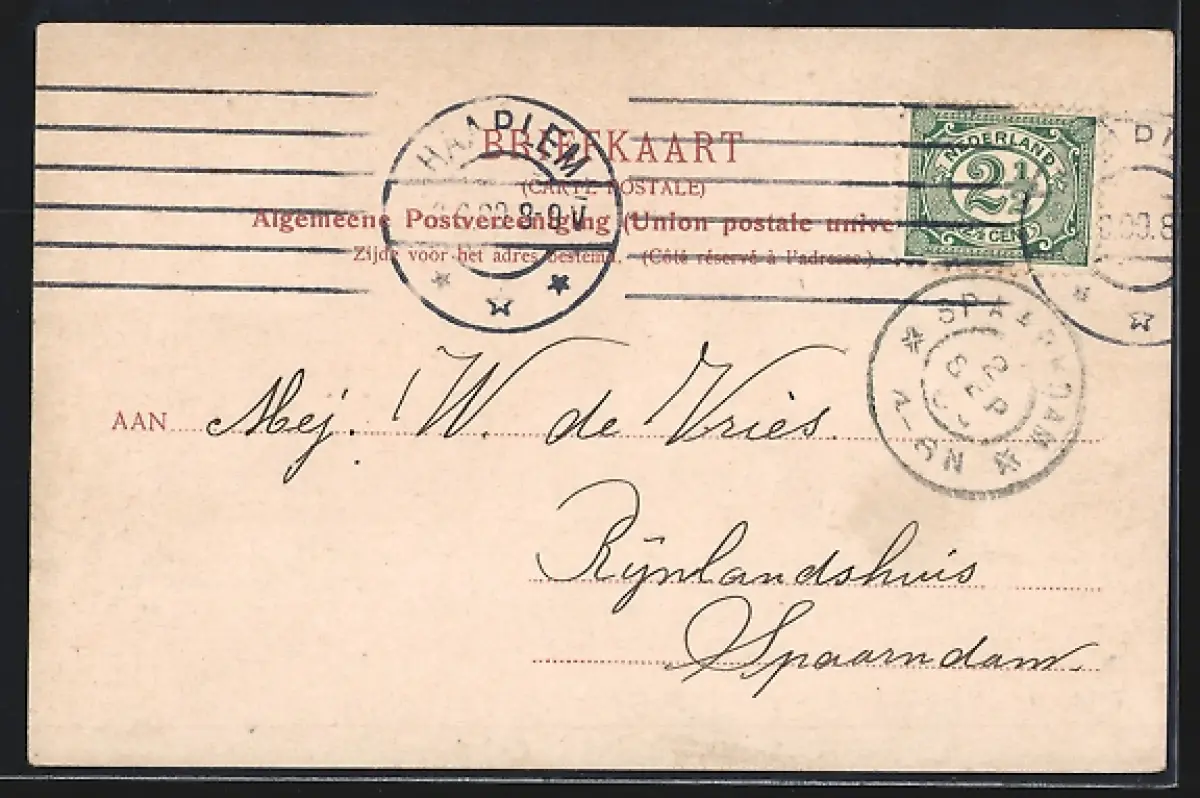 BRIEFKAART
(CARTE POSTALE)
Algemeene Postvereeniging (Union postale unive
Zijde voor het adres bestemd. (Côté réservé à l'adresse.)
HAARLEM
8-9 V
NEDERLAND
2 1/2
SPAARNDAM
2 SEP
8-9 V
AAN Mej. W. de Vries.
Rijnlandshuis
Spaarndam.